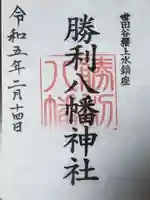 世田谷櫻上水鎮座
勝利八幡神社
令和五年二月十四日
勝利
八幡